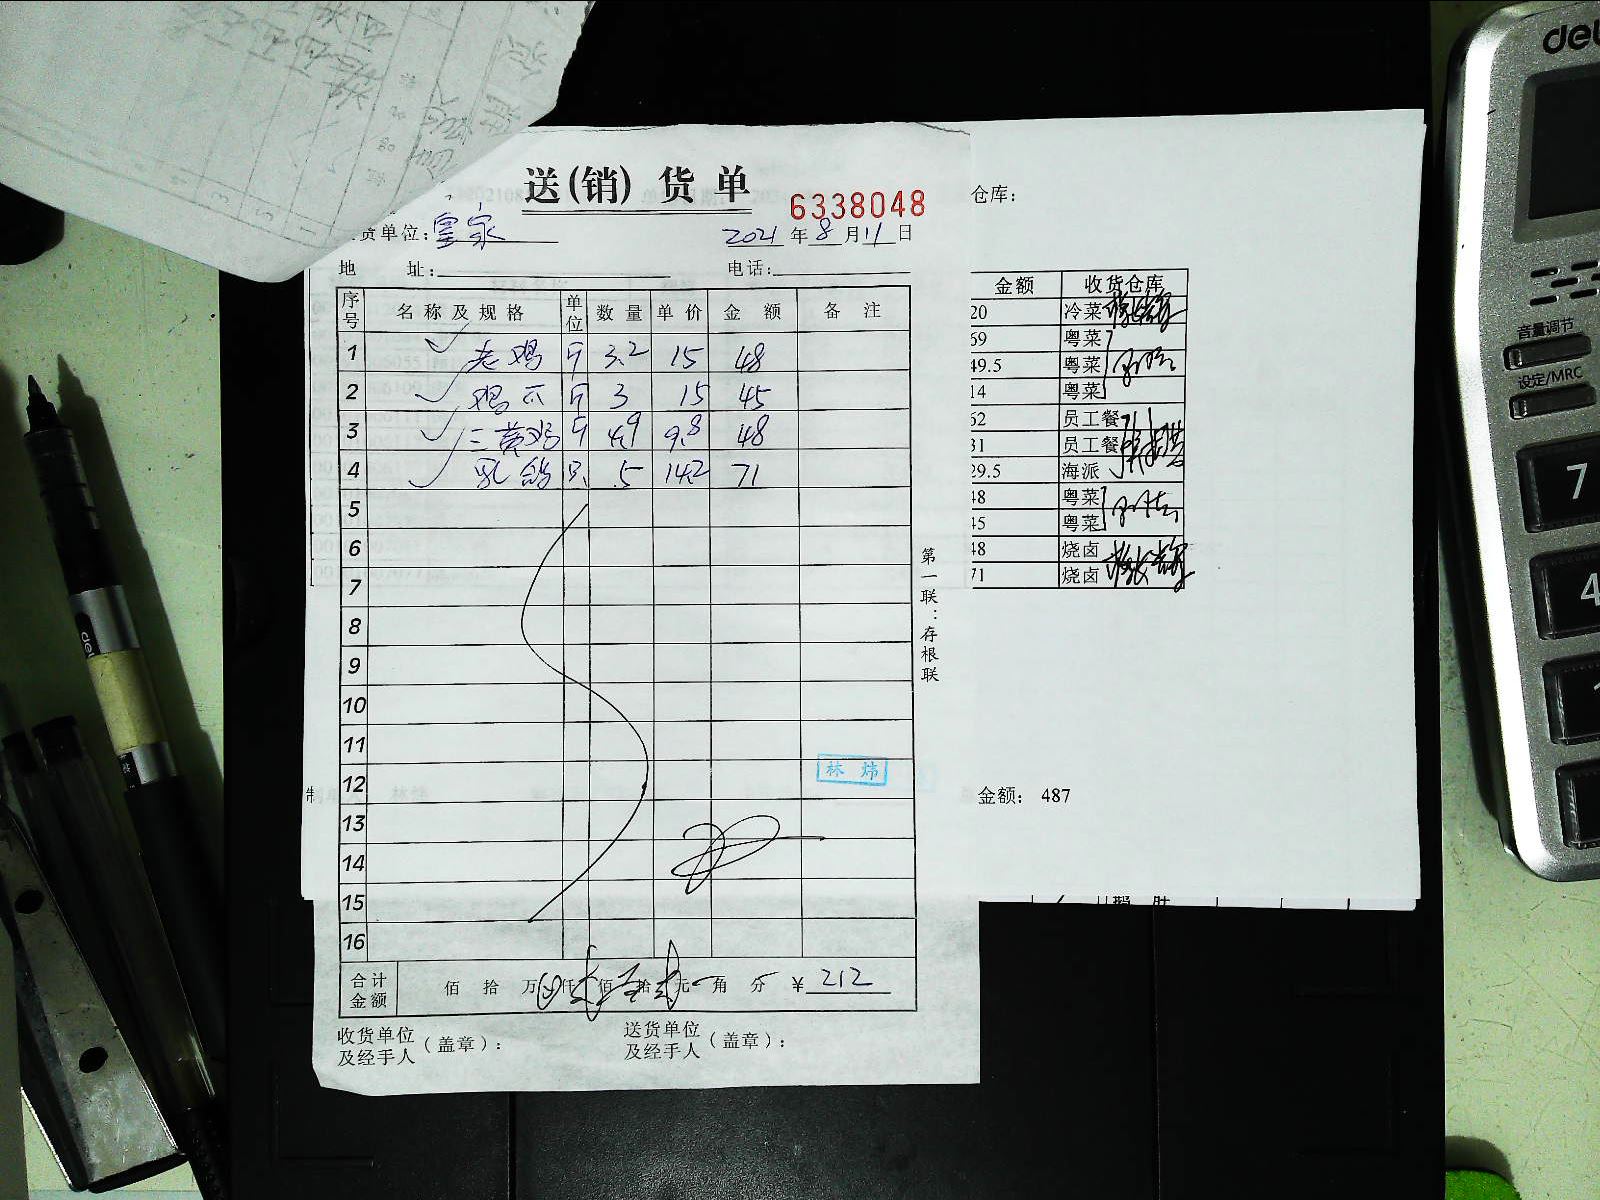 送(销)货单
6338048
货单位:皇家
2021年8月11日
地 址:
电话:
序号 名称及规格 单位 数量 单价 金额 备注
1 老鸡 斤 3.2 15 48
2 鸡爪 斤 3 15 45
3 三黄鸡 斤 4.9 9.8 48
4 乳鸽 只 5 14.2 71
5
6
7
8
9
10
11
12 林炜
13
14
15
16
合计金额 佰 拾 万 仟 佰 拾 元 角 分 ¥212
收货单位及经手人(盖章):
送货单位及经手人(盖章):
第一联:存根联
仓库:
金额 收货仓库
20 冷菜
69 粤菜
49.5 粤菜
14 粤菜
62 员工餐
31 员工餐
29.5 海派
48 粤菜
45 粤菜
48 烧卤
71 烧卤
金额: 487
制
deli
音量调节
设定/MRC
7
4